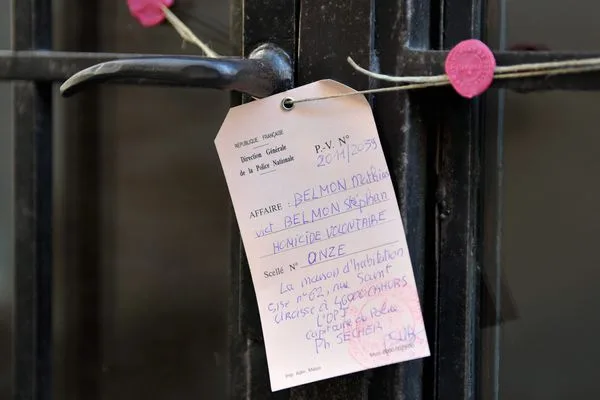 RÉPUBLIQUE FRANÇAISE
Direction Générale
de la Police Nationale
P.-V. N°
2011/2039
AFFAIRE : BELMON Mathias
vict BELMON Stéphan
HOMICIDE VOLONTAIRE
Scellé N° ONZE
La maison d'habitation
sise n°62, rue Saint
Urcisse à 46000 CAHORS
L'OPJ
Capitaine de Police
Ph SECHER
Imp. Adm. Melun